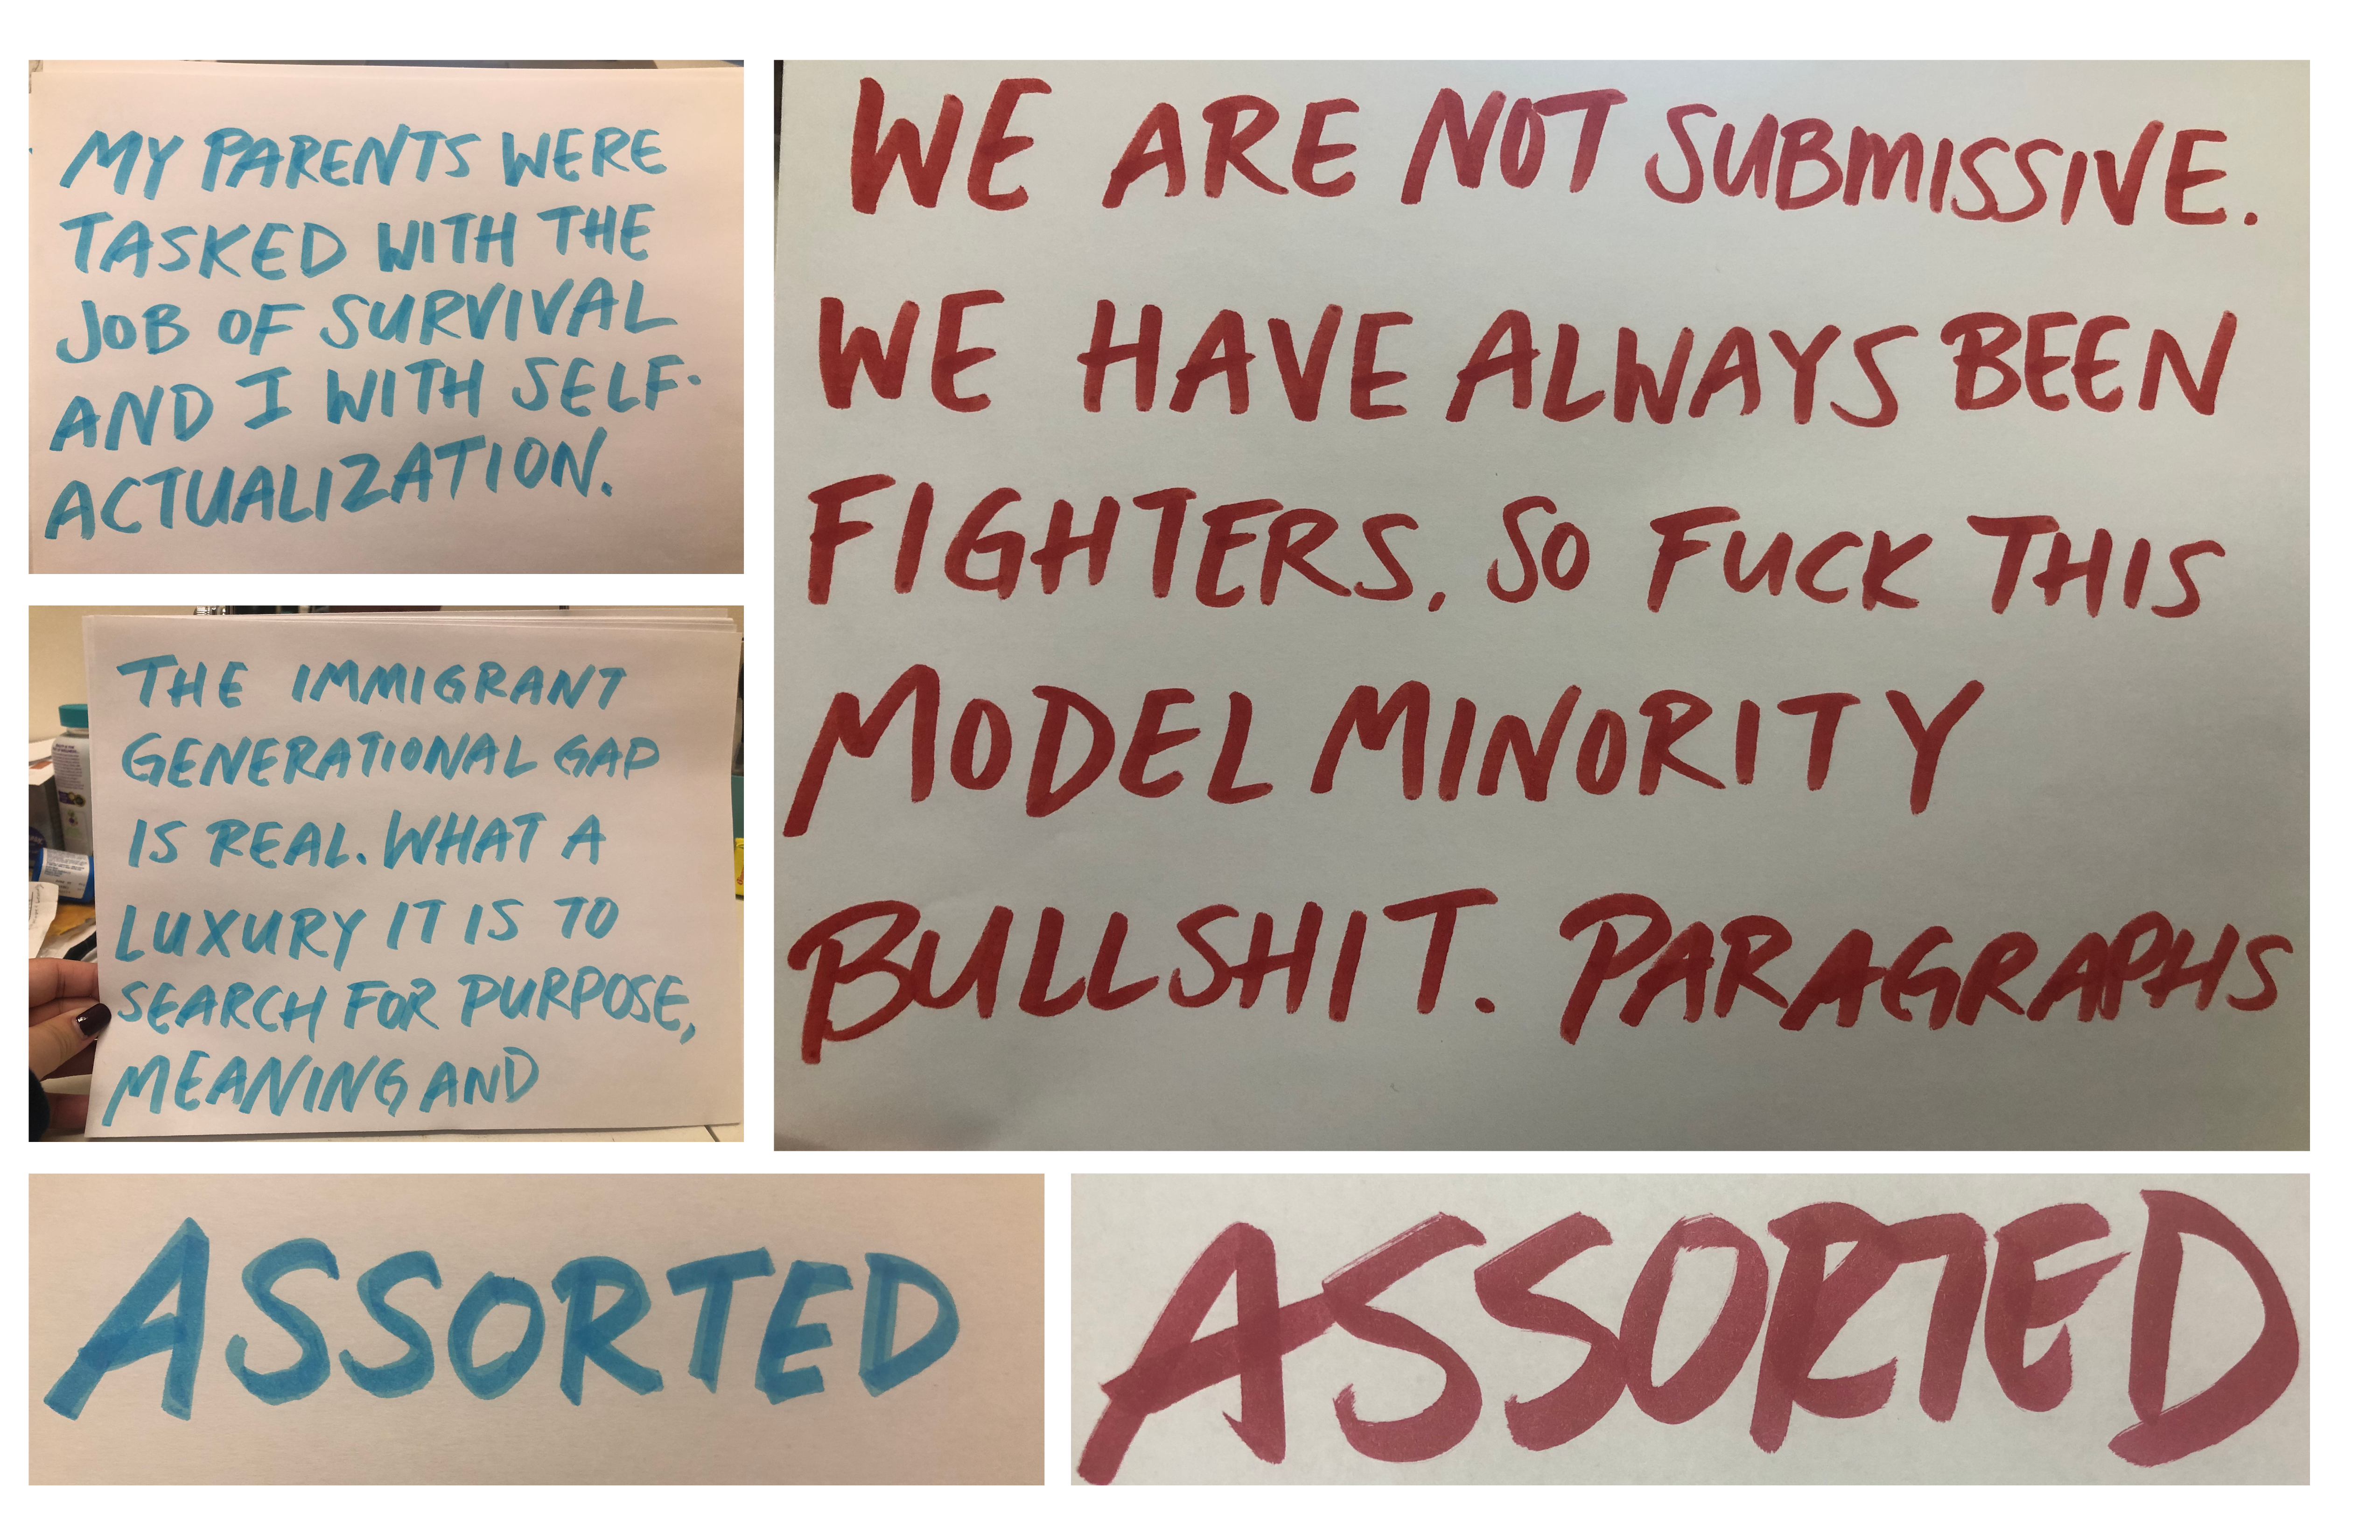 MY PARENTS WERE
TASKED WITH THE
JOB OF SURVIVAL
AND I WITH SELF-
ACTUALIZATION.
THE IMMIGRANT
GENERATIONAL GAP
IS REAL. WHAT A
LUXURY IT IS TO
SEARCH FOR PURPOSE,
MEANING AND
WE ARE NOT SUBMISSIVE.
WE HAVE ALWAYS BEEN
FIGHTERS. SO FUCK THIS
MODEL MINORITY
BULLSHIT. PARAGRAPHS
ASSORTED
ASSORTED